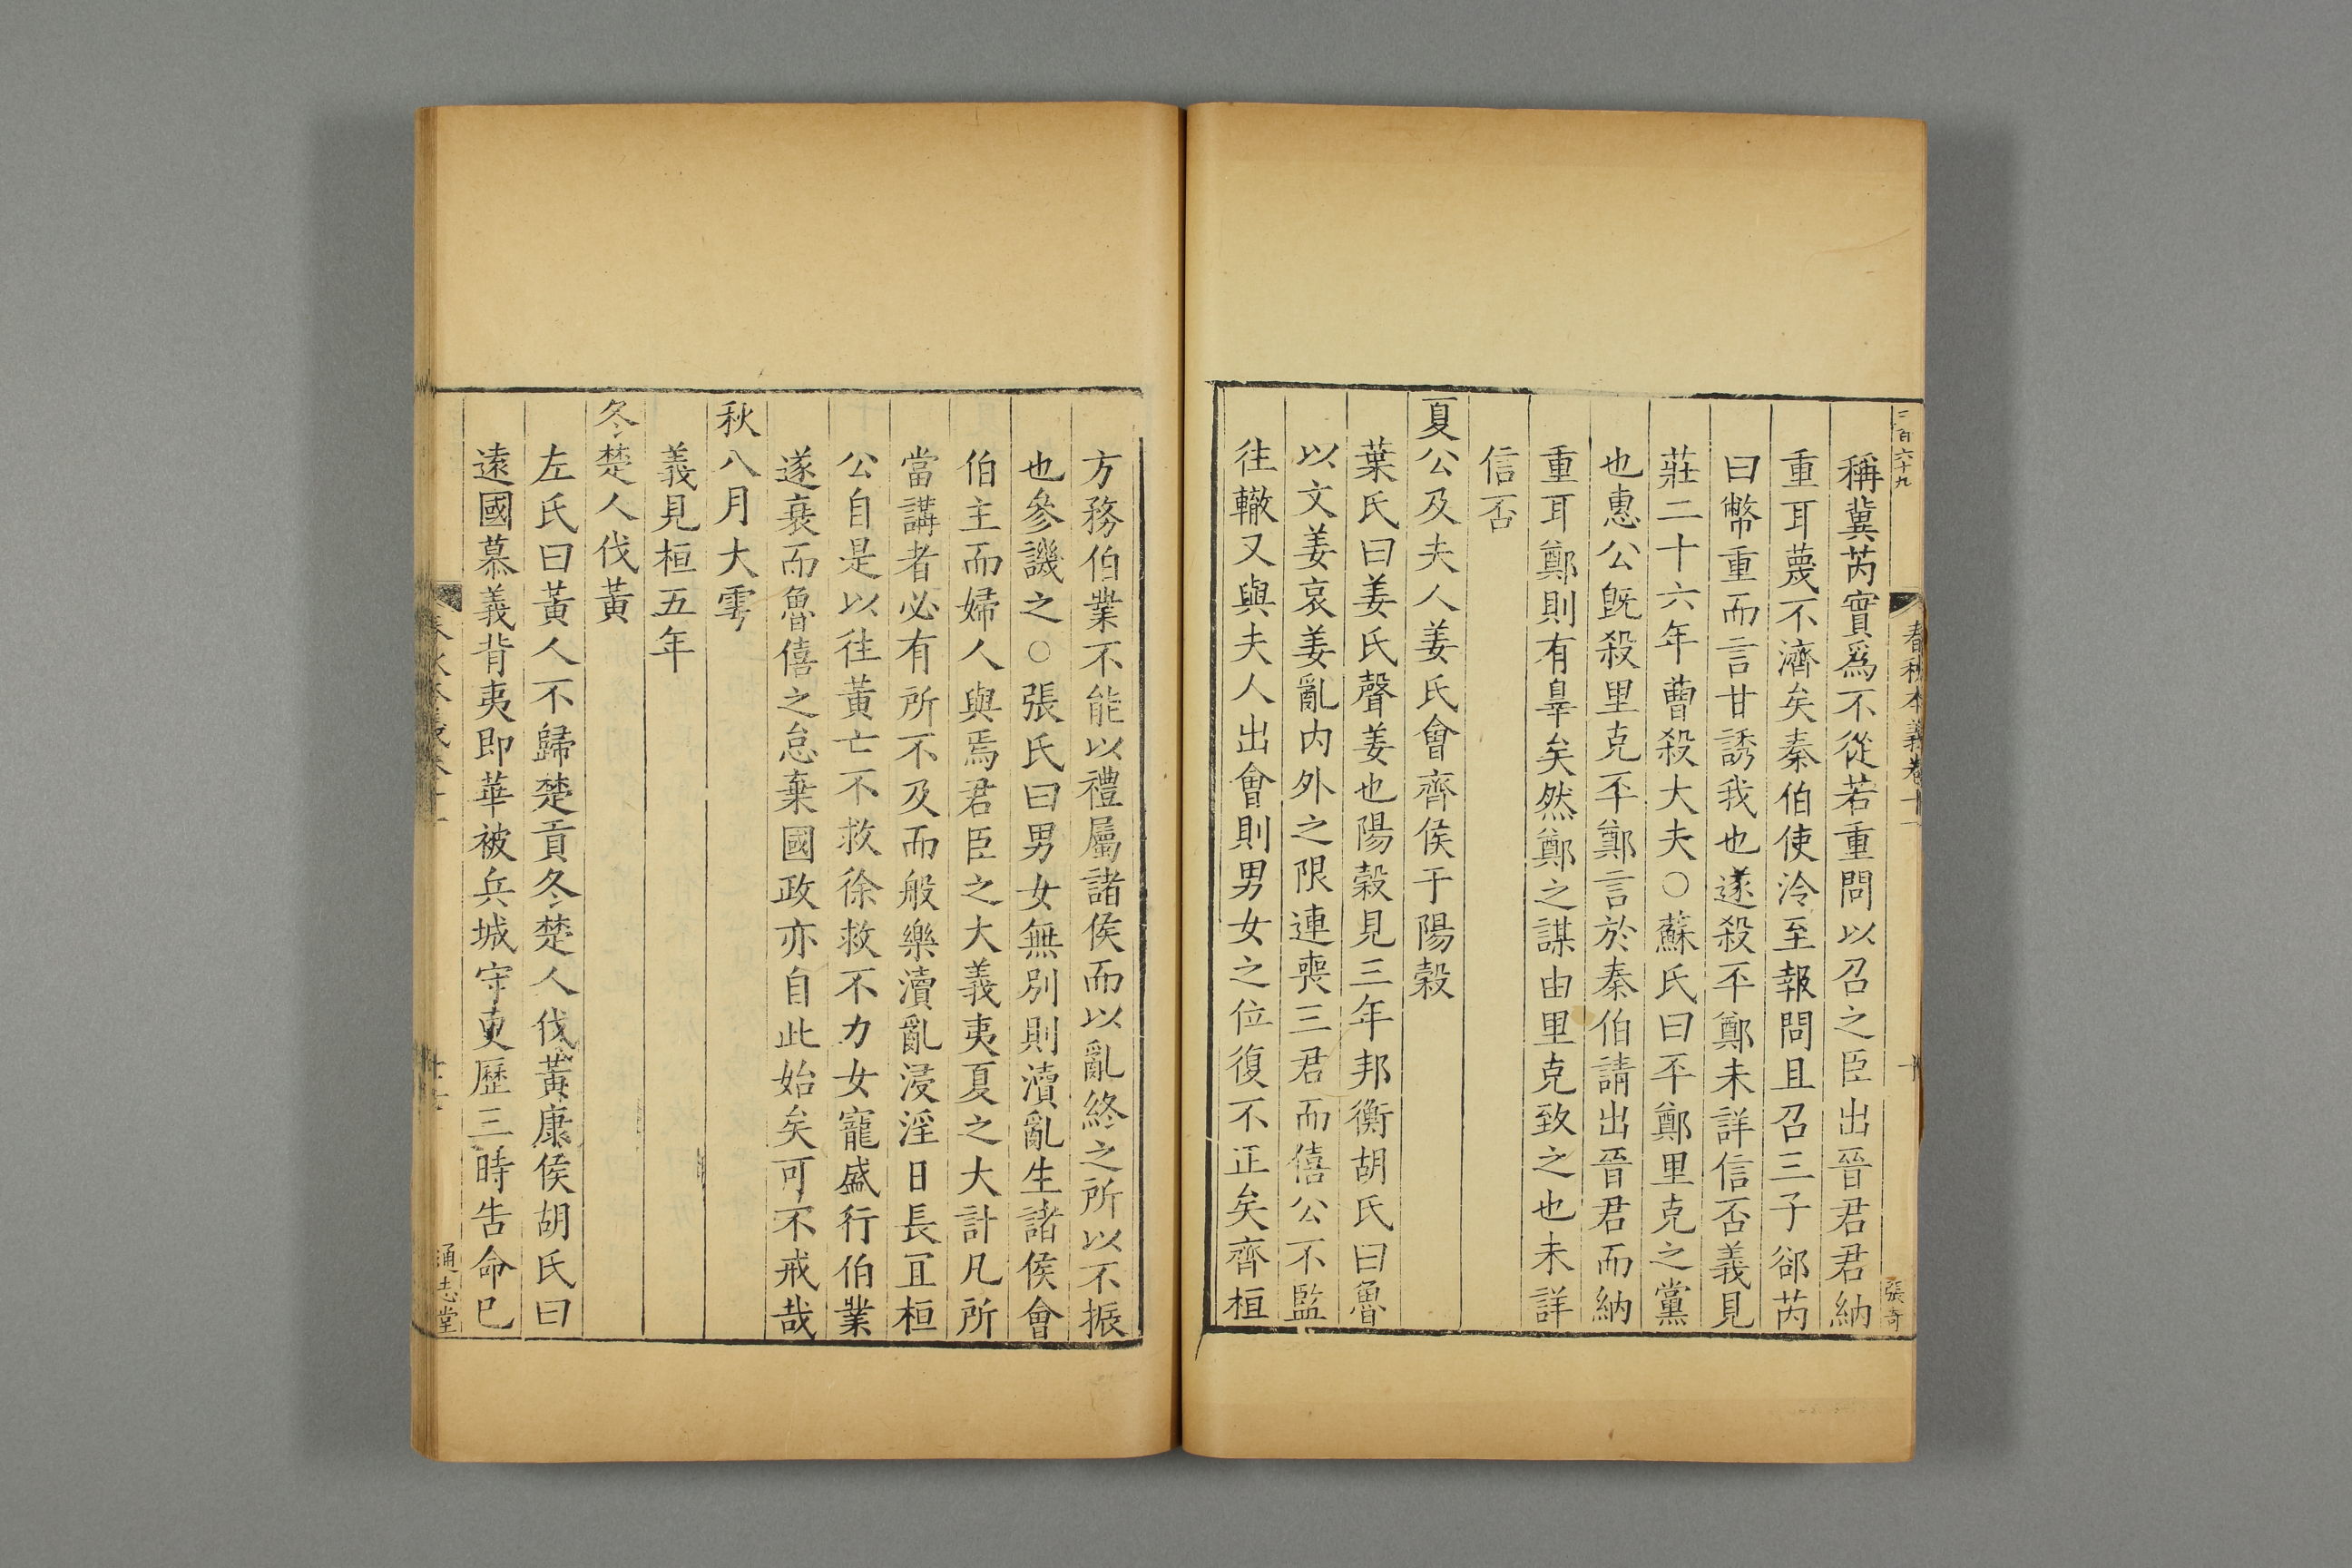 二百六十九
春秋本義卷十一
十
張奇
稱冀芮實爲不從若重問以召之臣出晉君君納
重耳蔑不濟矣秦伯使泠至報問且召三子郤芮
曰幣重而言甘誘我也遂殺丕鄭未詳信否義見
莊二十六年曹殺大夫○蘇氏曰丕鄭里克之黨
也惠公旣殺里克丕鄭言於秦伯請出晉君而納
重耳鄭則有辠矣然鄭之謀由里克致之也未詳
信否
夏公及夫人姜氏會齊侯于陽穀
葉氏曰姜氏聲姜也陽穀見三年邦衡胡氏曰魯
以文姜哀姜亂内外之限連喪三君而僖公不監
往轍又與夫人出會則男女之位復不正矣齊桓
方務伯業不能以禮屬諸侯而以亂終之所以不振
也參譏之○張氏曰男女無別則瀆亂生諸侯會
伯主而婦人與焉君臣之大義夷夏之大計凡所
當講者必有所不及而般樂瀆亂浸淫日長冝桓
公自是以往黃亡不救徐救不力女寵盛行伯業
遂衰而魯僖之怠棄國政亦自此始矣可不戒哉
秋八月大雩
義見桓五年
冬楚人伐黃
左氏曰黃人不歸楚貢冬楚人伐黃康侯胡氏曰
遠國慕義背夷即華被兵城守更歷三時告命已
通志堂